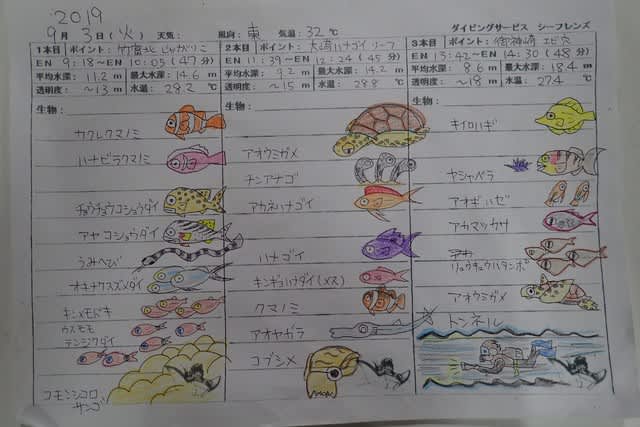 2019
9月 3日(火) 天気: 風向:東 気温:32℃ ダイビングサービス シーフレンズ
1本目 ポイント:竹富北じゃがバリコ
EN 9:18~EN 10:05(47分)
平均水深:11.2m 最大水深:14.6m
透明度:~13m 水温:28.2℃
生物:
カクレクマノミ
ハナビラクマノミ
チョウチョウコショウダイ
アヤコショウダイ
うみへび
オキナワスズメダイ
キンメモドキ
ウスモモ
テンジクダイ
コモンシコロ
サンゴ
2本目 ポイント:大崎ハナゴイリーフ
EN 11:39~EN 12:24(45分)
平均水深:9.2m 最大水深:14.2m
透明度:~15m 水温:28.8℃
生物:
アオウミガメ
チンアナゴ
アカネハナゴイ
ハナゴイ
キンギョハナダイ(メス)
クマノミ
アオヤガラ
コブシメ
3本目 ポイント:御神崎 エビ穴
EN 13:42~EN 14:30(48分)
平均水深:8.6m 最大水深:18.4m
透明度:~18m 水温:27.4℃
生物:
キイロハギ
ヤシャベラ
アオギハゼ
アカマツカサ
リュウキュウハタンポ
アオウミガメ
トンネル